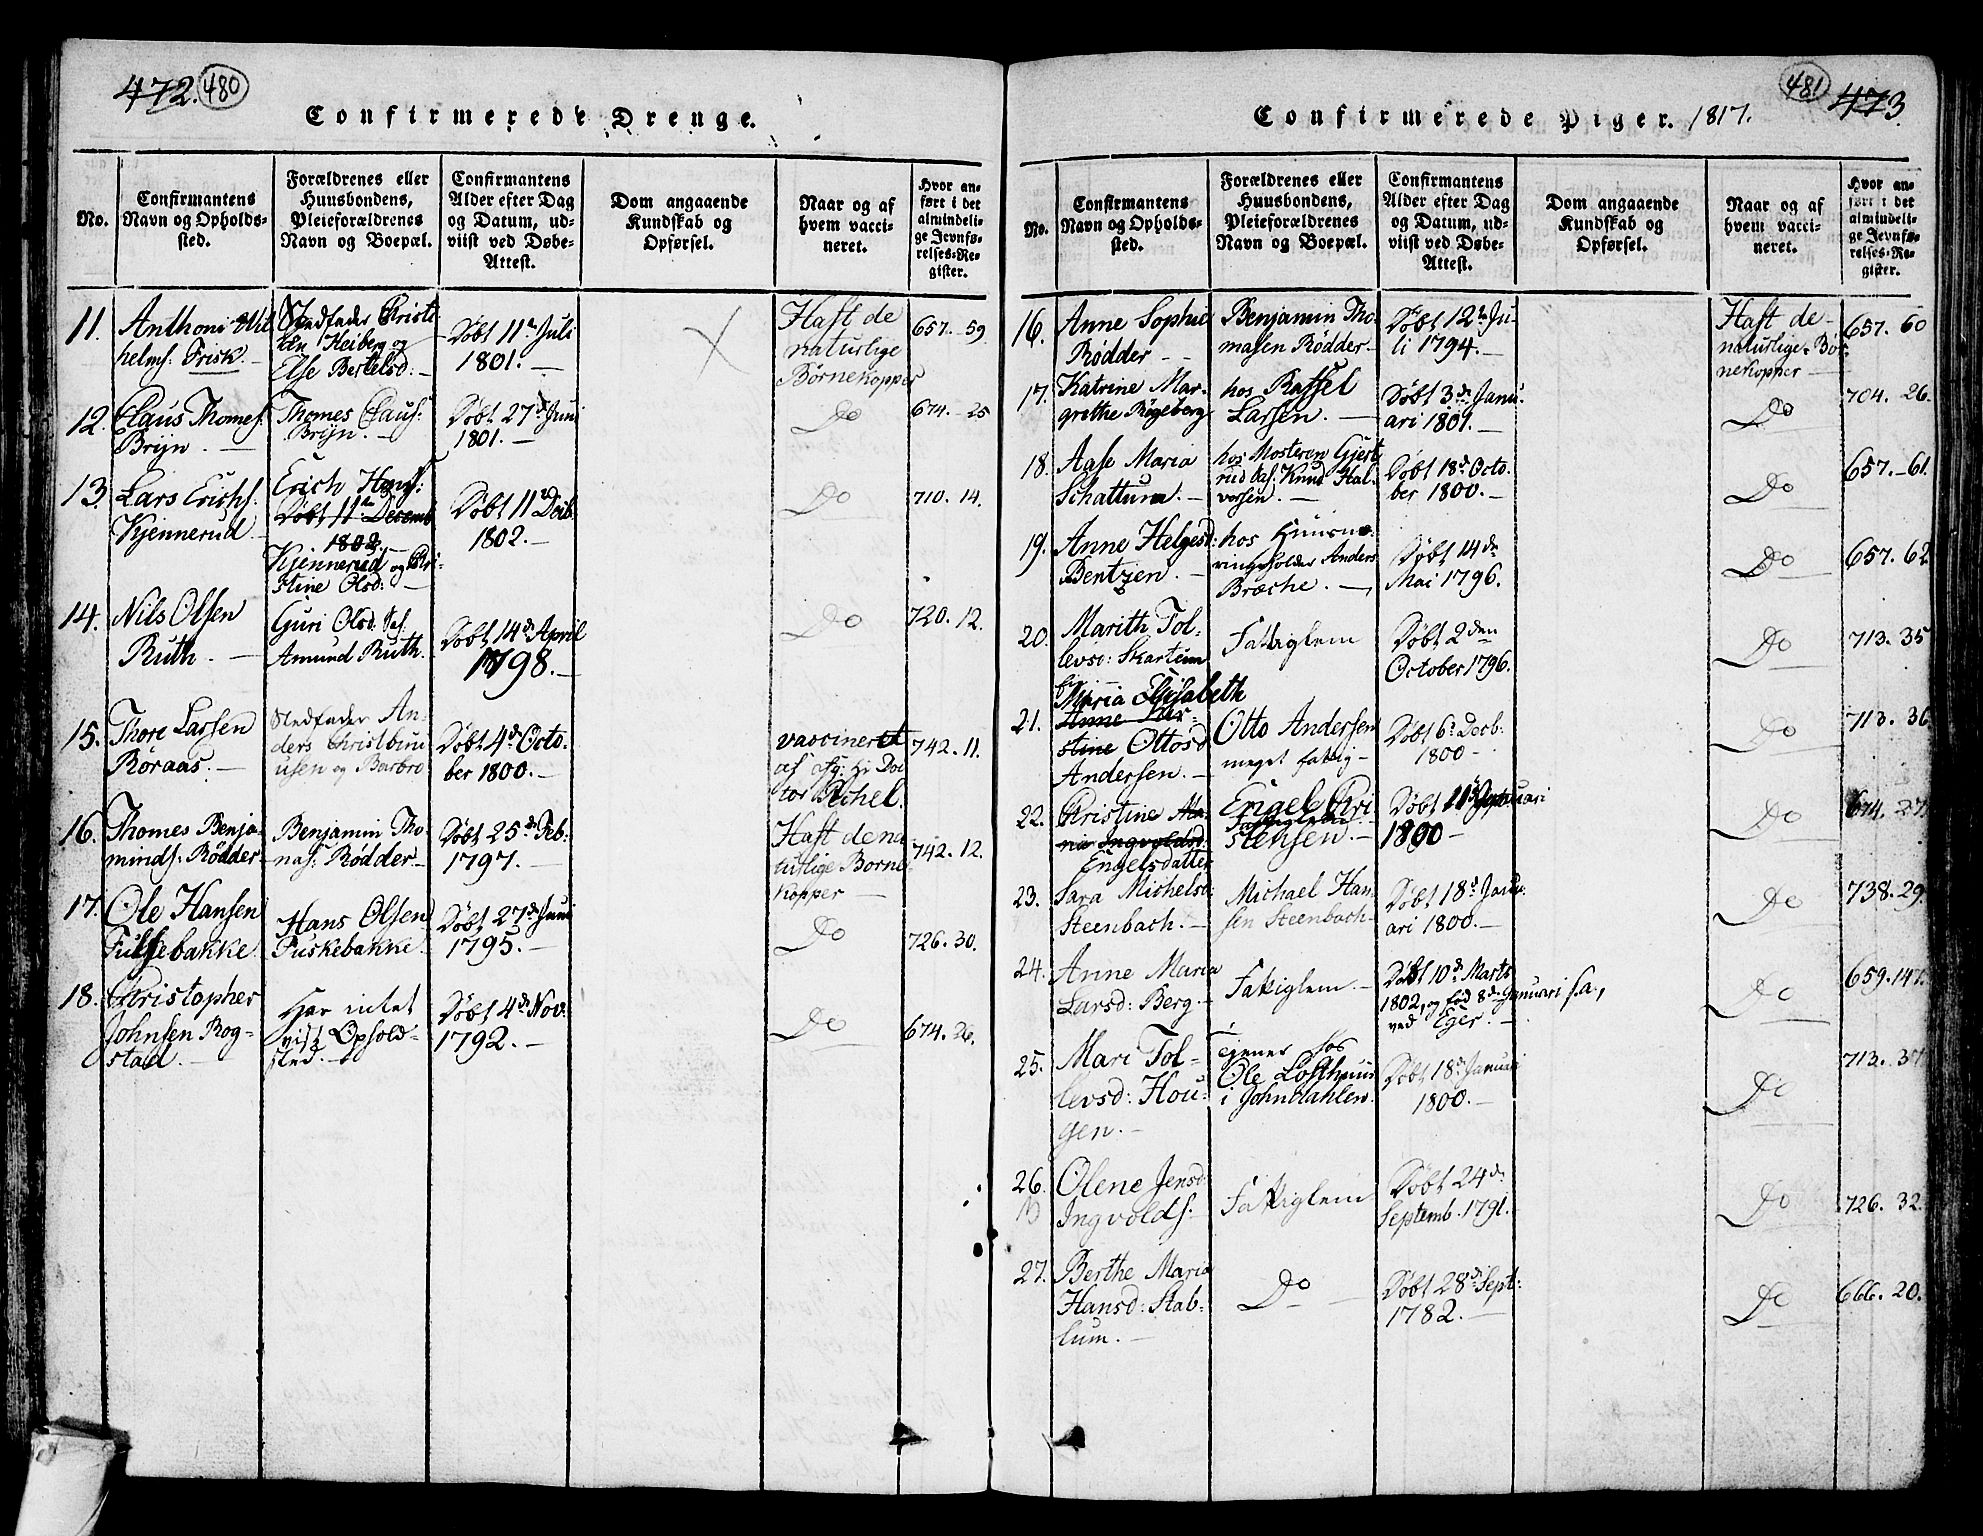 472. 480
Confirmerede Drenge.
No.
Confirmantens
Navn og Opholds-
sted.
Forældrenes eller
Huusbondens,
Pleieforældrenes
Navn og Boepæl.
Confirmantens
Alder efter Dag
og Datum, ud-
viist ved Døbe-
Attest.
Dom angaaende
Kundskab og
Opførsel.
Naar og af
hvem vacci-
neret.
Hvor an-
ført i det
almindeli-
ge Jevnfø-
relses-Re-
gister.
11.
Anthoni Wil
helms: Frisk. -
Stedfader Christi
an Heiberg og
Else Bertelsd: -
Døbt 11te Juli
1801. -
Haft de
naturlige
Børnekopper
657. 59.
12.
Claus Thomes:
Brijn. -
Thomes Claus:
Brijn. -
Døbt 27de Juni
1801. -
Do
674. 25
13.
Lars Erichs:
Kjennerud -
Erich Hans:
Døbt 11te Decemb
1802. -
Kjennerud og Chri-
stine Olsd: -
Døbt 11te Decb:
1802. -
Do
710. 14.
14.
Nils Olsen
Ruth. -
Guri Olsd:
Amund Ruth.
Døbt 14de April
1798. -
Do
720. 12.
15.
Thore Larsen
Røraas. -
Stedfader An-
ders Christian
usen og Barbro
Døbt 4de Octo-
ber 1800. -
vaccineret
af afg: Hr Doc
tor Pichel.
742. 11.
16.
Thomes Benja-
minds: Rødder
Benjamin Tho
mas: Rødder -
Døbt 25de Feb:
1797. -
Haft de na
turlige Børne-
kopper -
742. 12.
17.
Ole Hansen
Fuskebakke
Hans Olsen
Fuskebakke.
Døbt 27de Juni
1795. -
Do
726. 30.
18.
Christopher
Johnsen Rog-
stad. -
Har intet
vist Ophold-
sted. -
Døbt 4de Nov:
1792. -
Do
674. 26.
481 473
Confirmerede Piger. 1817.
No.
Confirmantens
Navn og Opholds-
sted.
Forældrenes eller
Huusbondens,
Pleieforældrenes
Navn og Boepæl.
Confirmantens
Alder efter Dag
og Datum, ud-
viist ved Døbe-
Attest.
Dom angaaende
Kundskab og
Opførsel.
Naar og af
hvem vacci-
neret.
Hvor an-
ført i det
almindeli-
ge Jevnfø-
relses-Re-
gister.
16.
Anne Sophie
Rødder - -
Benjamin Tho
masen Rødder -
Døbt 12te Ju-
li 1794. -
Haft de
naturlige Bør
nekopper -
657. 60
17.
Katrine Mar-
grethe Rigeberg
hos Rassel
Larsen. -
Døbt 3de Janu-
ari 1801. -
Do
704. 26.
18.
Aase Maria
Schattum. -
hos Mosteren Gjert
rud Knud Hal-
vorsen. -
Døbt 18de Octo-
ber 1800. -
Do
657. 61.
19.
Anne Helgesd:
Bentzen. -
hos Huusnæ-
ringsholder Anders
Bræche. -
Døbt 14de
Mai 1796.
Do
657. 62
20.
Marith Tol-
levsd: Skartum
Fattiglem
Døbt 2den
October 1796.
Do
713. 35
21.
Maria Elisabeth
Anne Kir-
stine Ottosd
Andersen. -
Otto Andersen
meget fattig -
Døbt 6te Decb:
1800 -
Do
713. 36
22.
Christine Ma-
rie Ingvoldsd:
Engelsdatter
Engel Chri
Fattiglem
stensen -
Døbt Januari
1800 -
Do
674. 27.
23.
Sara Michelsd:
Steenbach. -
Michael Han
sen Steenbach -
Døbt 18de Janu-
ari 1800. -
Do
738. 29.
24.
Anne Maria
Larsd: Berg. -
Fattiglem. -
Døbt 10de Marts
1802, og fød 8de Januari s.a.,
ved Eger. -
Do
659. 147.
25.
Mari Tol-
levsd: Hou-
gen. -
tjener hos
Ole Losthuus
i Johndahlen.
Døbt 18de Januari
1800. -
Do
713. 37
26.
Olene Jensd:
Ingvolds:
Fattiglem
Døbt 24de
Septemb. 1791.
Do
726. 32.
27.
Berthe Maria
Hansd: Stab-
lum. -
Do
Døbt 28de Sept:
1782. -
Do
666. 20.